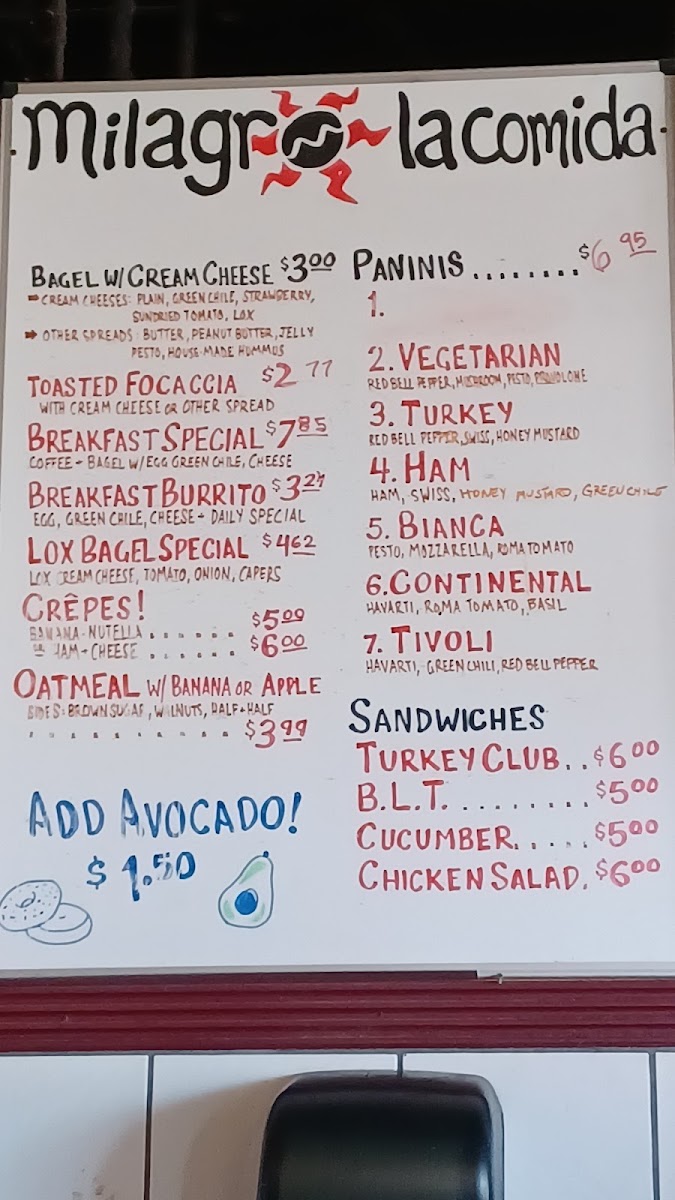 milagro la comida
BAGEL W/ CREAM CHEESE $3.00
➡ CREAM CHEESES: PLAIN, GREEN CHILE, STRAWBERRY,
SUNDRIED TOMATO, LOX
➡ OTHER SPREADS: BUTTER, PEANUT BUTTER, JELLY
PESTO, HOUSE-MADE HUMMUS
TOASTED FOCACCIA $2.77
WITH CREAM CHEESE OR OTHER SPREAD
BREAKFAST SPECIAL $7.85
COFFEE + BAGEL W/ EGG GREEN CHILE, CHEESE
BREAKFAST BURRITO
EGG, GREEN CHILE, CHEESE + DAILY SPECIAL
LOX BAGEL SPECIAL $4.62
LOX CREAM CHEESE, TOMATO, ONION, CAPERS
CRÊPES!
BANANA-NUTELLA ...... $5.00
HAM + CHEESE ...... $6.00
OATMEAL W/ BANANA OR APPLE
SIDES: BROWN SUGAR, WALNUTS, HALF+HALF
.......... $3.99
ADD AVOCADO!
$1.50
PANINIS ........ $6.95
1.
2. VEGETARIAN
RED BELL PEPPER, MUSHROOM, PESTO, PROVOLONE
3. TURKEY
RED BELL PEPPER, SWISS, HONEY MUSTARD
4. HAM
HAM, SWISS, HONEY MUSTARD, GREEN CHILE
5. BIANCA
PESTO, MOZZARELLA, ROMA TOMATO
6. CONTINENTAL
HAVARTI, ROMA TOMATO, BASIL
7. TIVOLI
HAVARTI, GREEN CHILI, RED BELL PEPPER
SANDWICHES
TURKEY CLUB.. $6.00
B.L.T. ......... $5.00
CUCUMBER..... $5.00
CHICKEN SALAD. $6.00